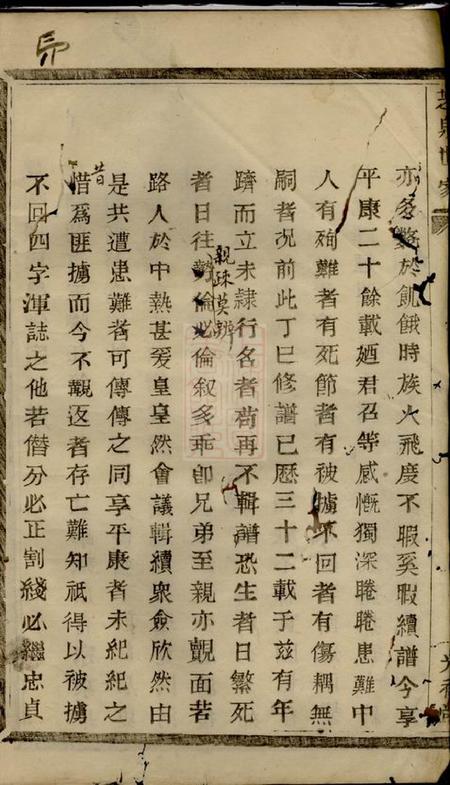 亦多斃於飢餓時族火飛度不暇奚暇續譜今享
平康二十餘載廼君召等感慨獨深睠睠患難中
人有殉難者有死節者有被擄不回者有傷耦無
嗣者况前此丁巳修譜已歷三十二載于兹有年
躋而立未隸行名者苟再不輯譜恐生者日繁死
者日往親疎莫辨勢倫必倫叙多乖卽兄弟至親亦覿面若
路人於中熱甚爰皇皇然會議輯續衆僉欣然由
是共遭患難者可傳傳之同享平康者未紀紀之
昔惜爲匪擄而今不覩返者存亡難知祇得以被擄
不回四字渾誌之他若僭分必正割綫必繼忠貞
世家